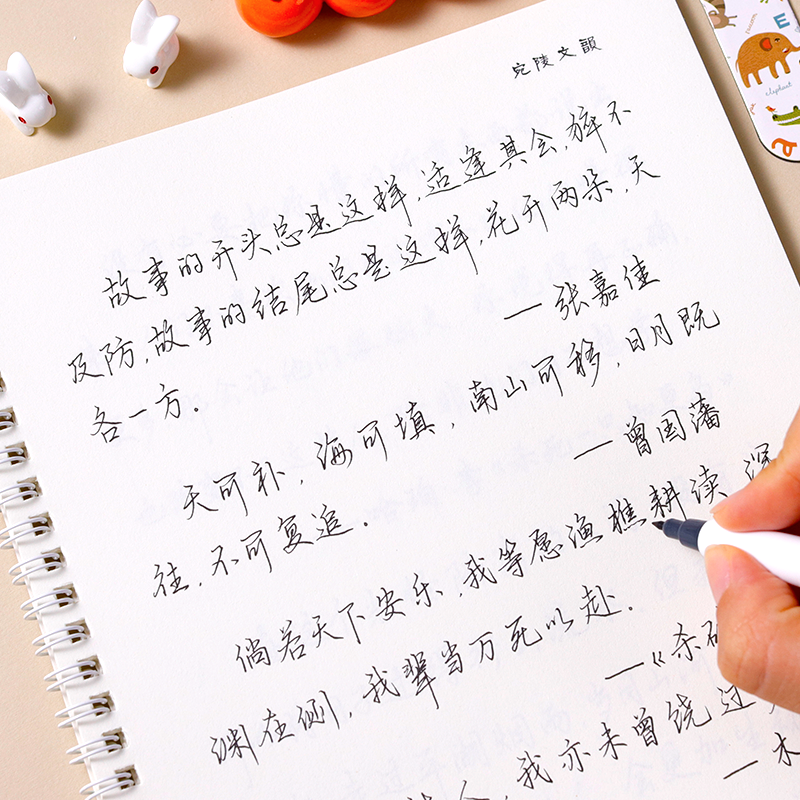 宛陵文韻
故事的开头总是这样，适逢其会，猝不
及防，故事的结尾总是这样，花开两朵，天
各一方。
—张嘉佳
天可补，海可填，南山可移，日月既
往，不可复追。
—曾国藩
倘若天下安乐，我等愿渔樵耕读 深
渊在侧，我辈当万死以赴。
—《杀破
我亦未曾绕过
—木
elephant